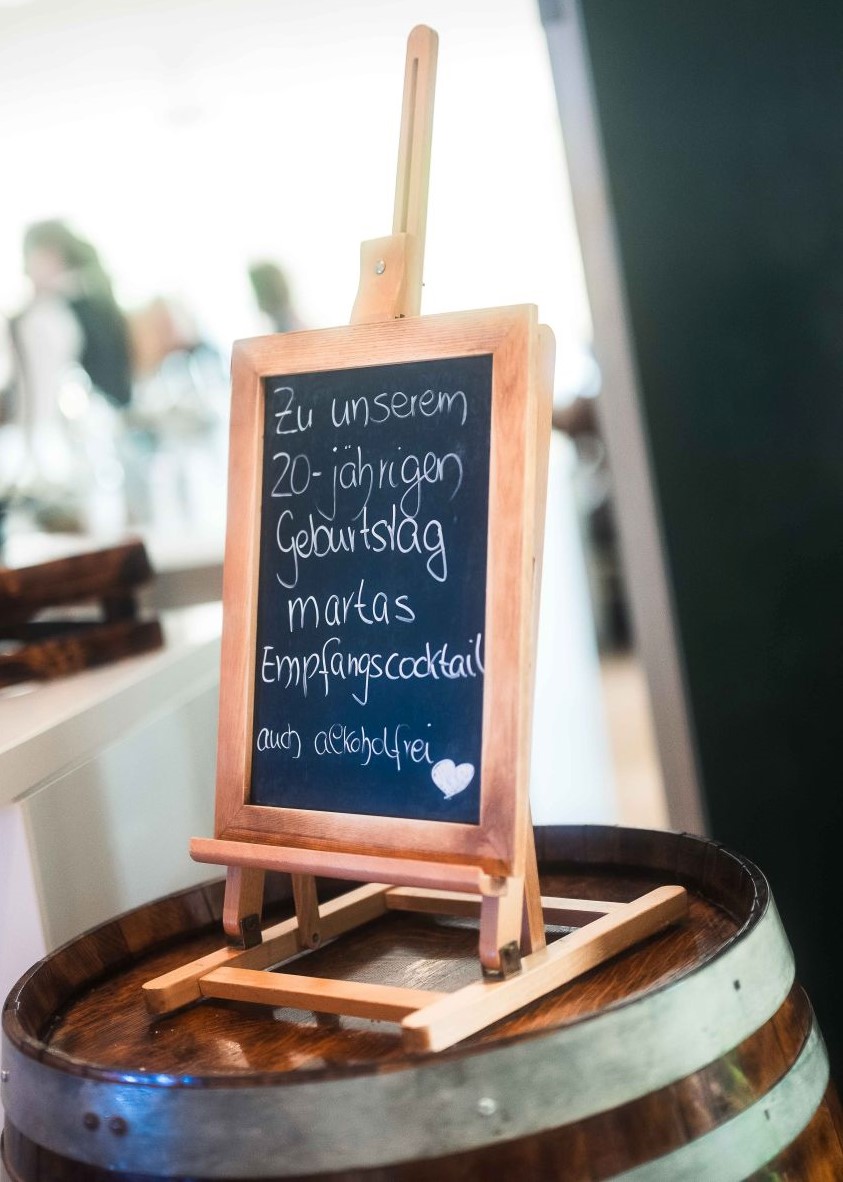 Zu unserem
20-jährigen
Geburtstag
martas
Empfangscocktail
auch alkoholfrei